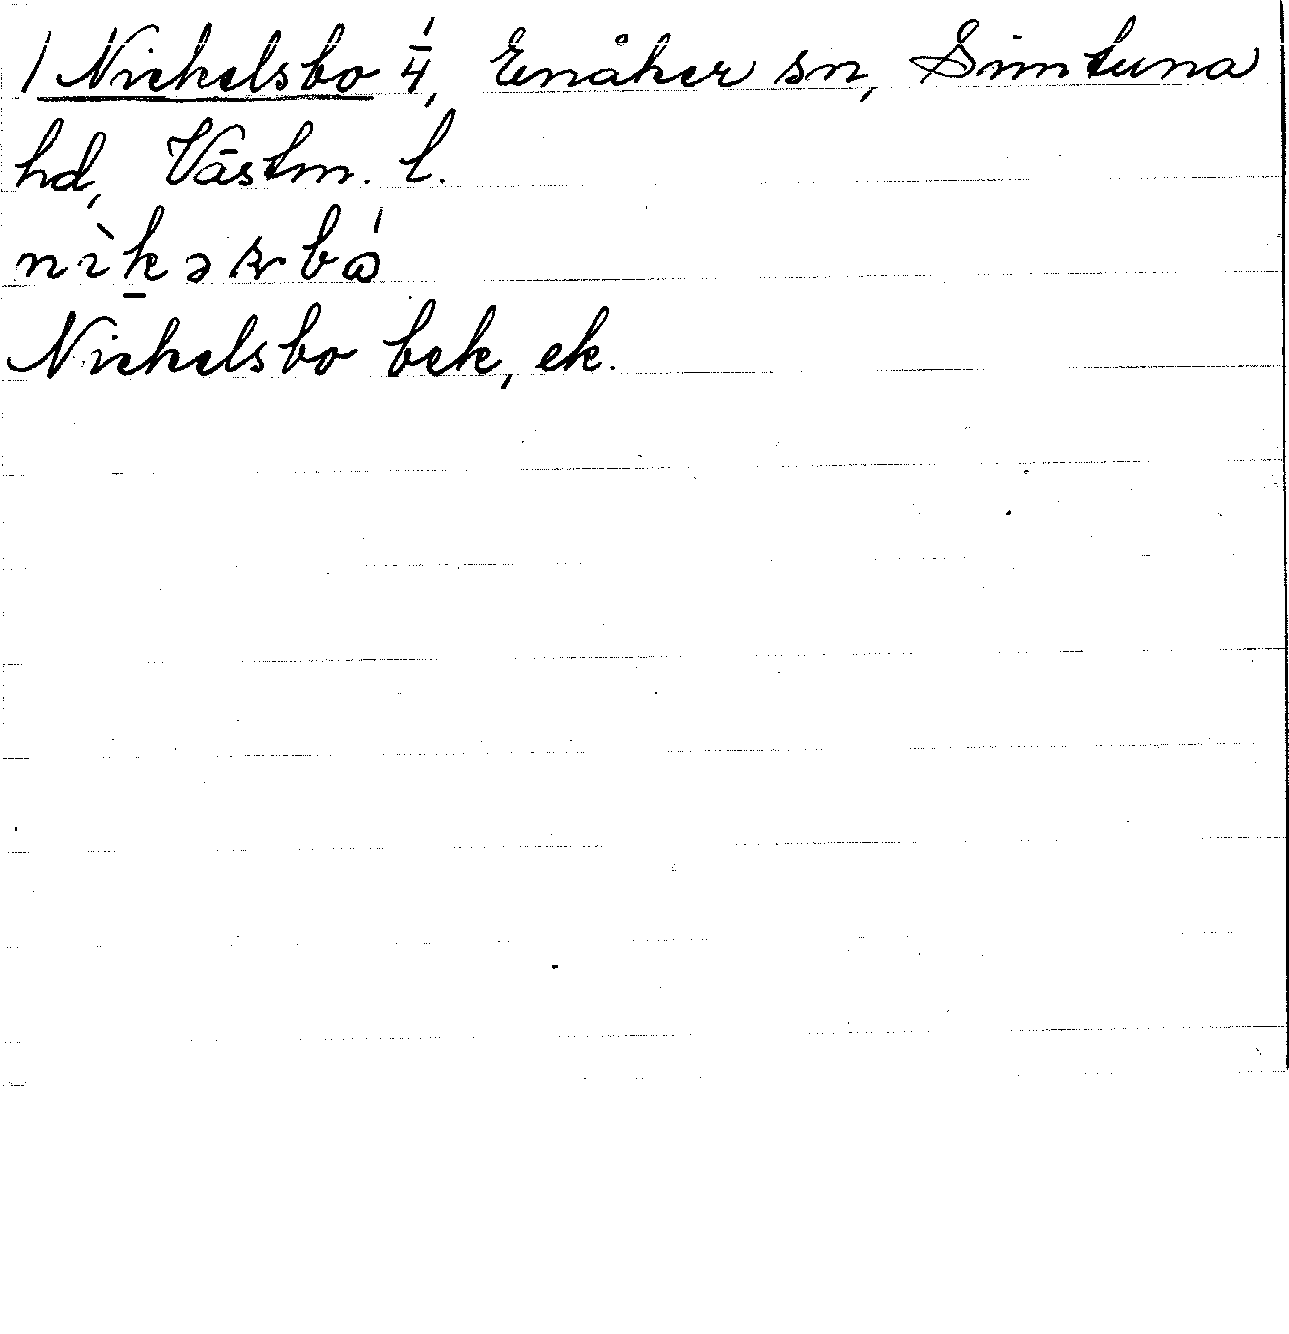 / Nickelsbo 1/4, Enåker sn, Simtuna
hd, Västm. l.
Nickelsbo bek, ek.